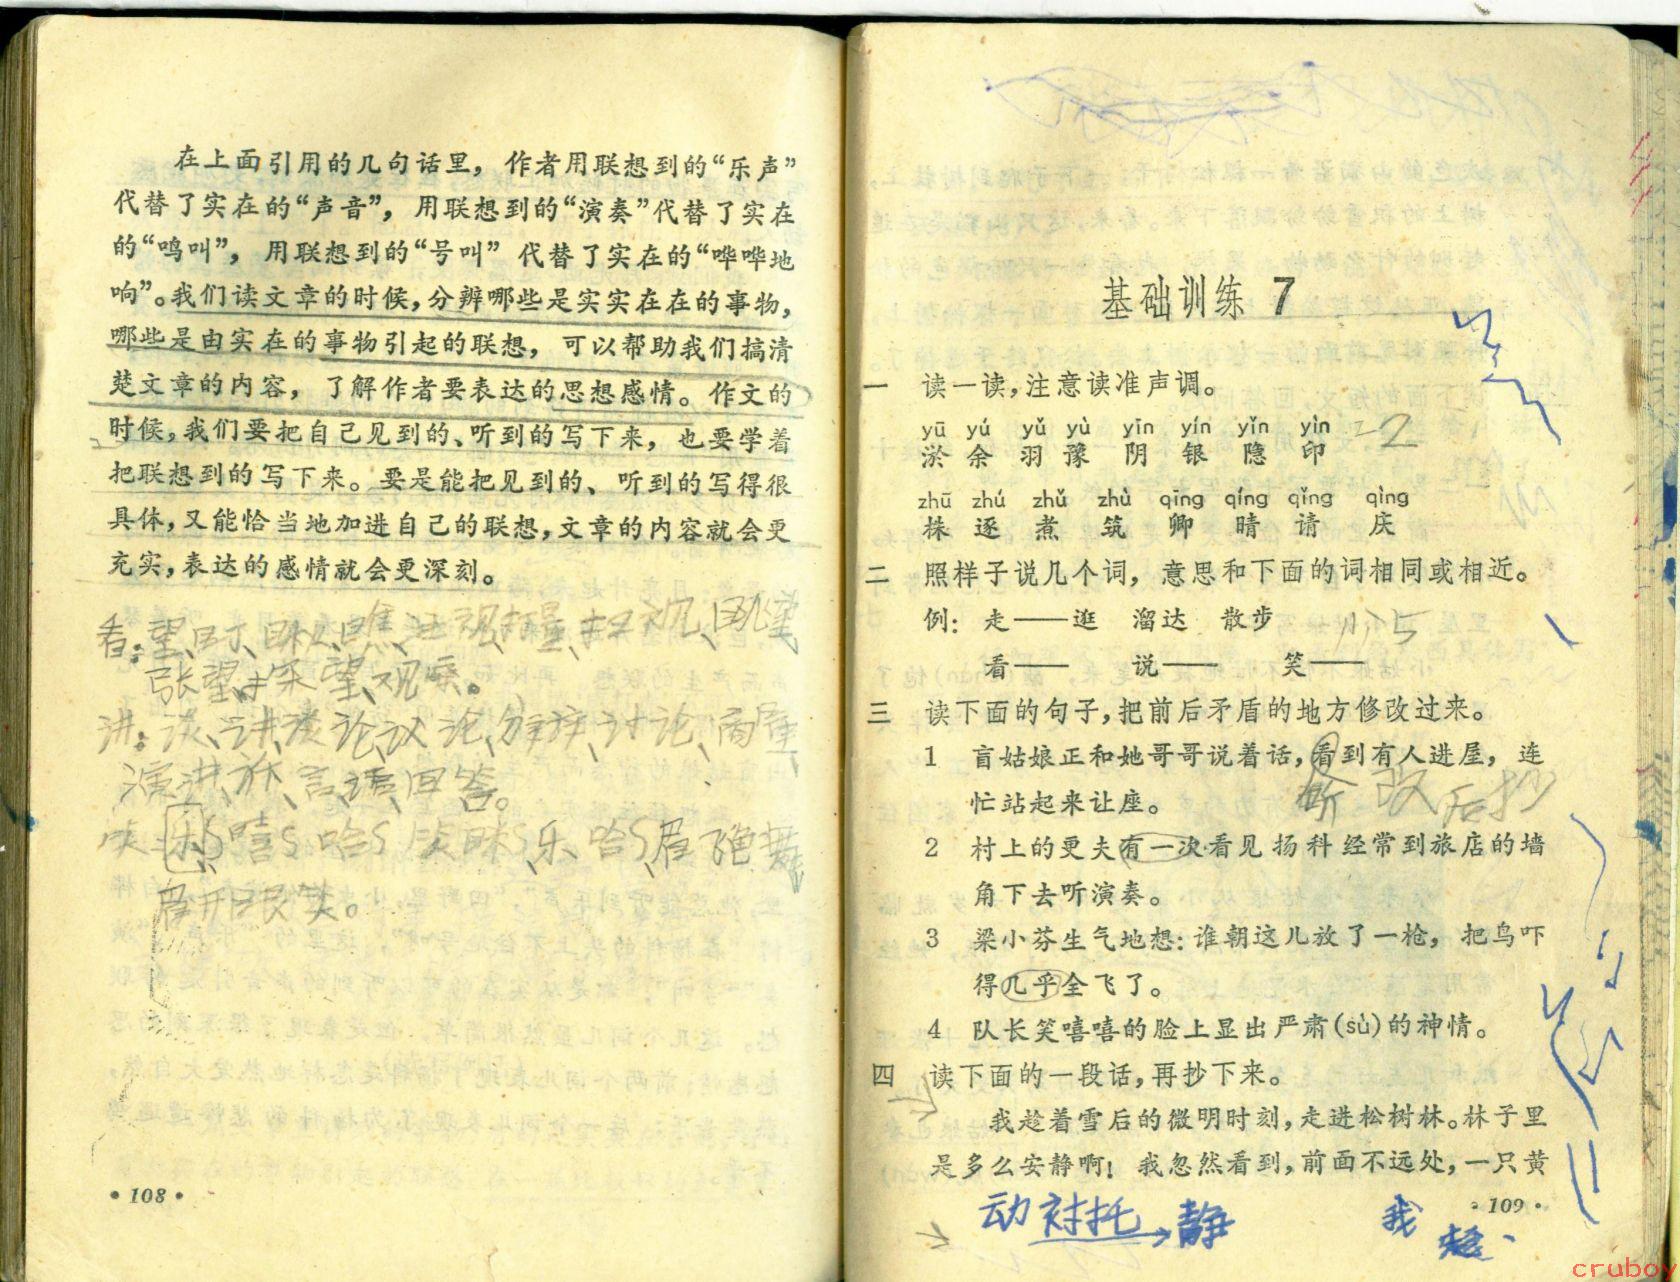 在上面引用的几句话里，作者用联想到的“乐声”
代替了实在的“声音”，用联想到的“演奏”代替了实在
的“鸣叫”，用联想到的“号叫”代替了实在的“哗哗地
响”。我们读文章的时候，分辨哪些是实实在在的事物，
哪些是由实在的事物引起的联想，可以帮助我们搞清
楚文章的内容，了解作者要表达的思想感情。作文的
时候，我们要把自己见到的、听到的写下来，也要学着
把联想到的写下来。要是能把见到的、听到的写得很
具体，又能恰当地加进自己的联想，文章的内容就会更
充实，表达的感情就会更深刻。
看：望、
张望、 观察。
讲：谈、讲、谈论、议论、 讨论、商量
演讲、 言语、回答。
眉开眼笑。
·108·
基础训练 7
一 读一读，注意读准声调。
yū yú yǔ yù yīn yín yǐn yìn
淤 余 羽 豫 阴 银 隐 印
zhū zhú zhǔ zhù qīng qíng qǐng qìng
株 逐 煮 筑 卿 晴 请 庆
二 照样子说几个词，意思和下面的词相同或相近。
例：走——逛 溜达 散步
看—— 说—— 笑——
三 读下面的句子，把前后矛盾的地方修改过来。
1 盲姑娘正和她哥哥说着话，看到有人进屋，连
忙站起来让座。
改后抄
2 村上的更夫有一次看见扬科经常到旅店的墙
角下去听演奏。
3 梁小芬生气地想：谁朝这儿放了一枪，把鸟吓
得几乎全飞了。
4 队长笑嘻嘻的脸上显出严肃(sù)的神情。
四 读下面的一段话，再抄下来。
我趁着雪后的微明时刻，走进松树林。林子里
是多么安静啊！我忽然看到，前面不远处，一只黄
·109·
动衬托→静
我
cruboy